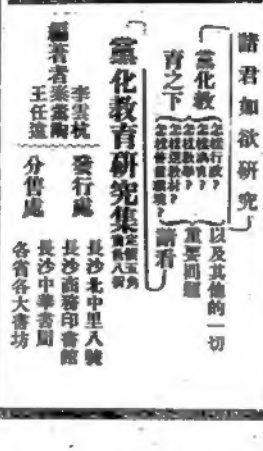 諸君如欲研究
黨化教
育之下
怎樣行政？
怎樣訓育？
怎樣教學？
怎樣選教材？
以及其他的一切
重要問題
請看
黨化教育研究集
定價五角
實售八折
編著者
李雲杭
王任遠
發行處
長沙北中里八號
分售處
長沙商務印書館
長沙中華書局
各省各大書坊